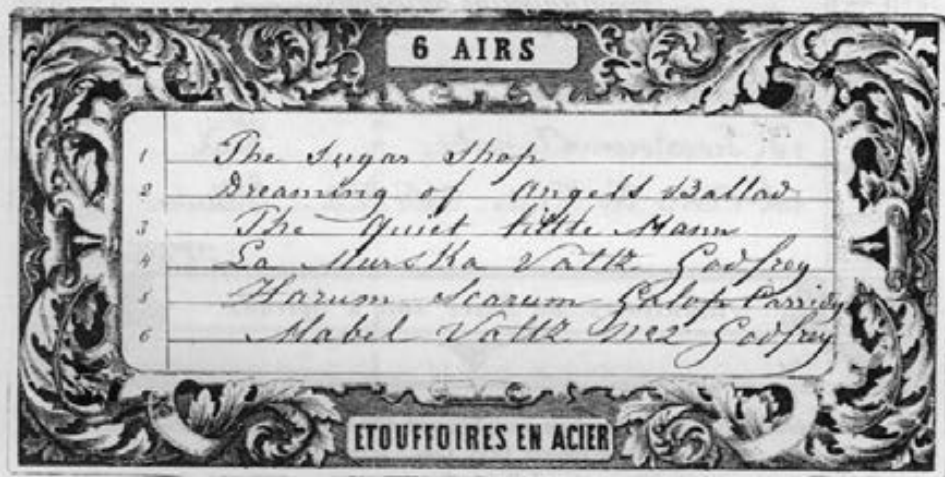 6 AIRS
1 The Sugar Shop
2 Dreaming of Angels Ballad
3 The Quiet little Mann
4 La Murska Valtz Godfrey
5 Harum Scarum Galop
6 Mabel Valtz Godfrey
ETOUFFOIRES EN ACIER